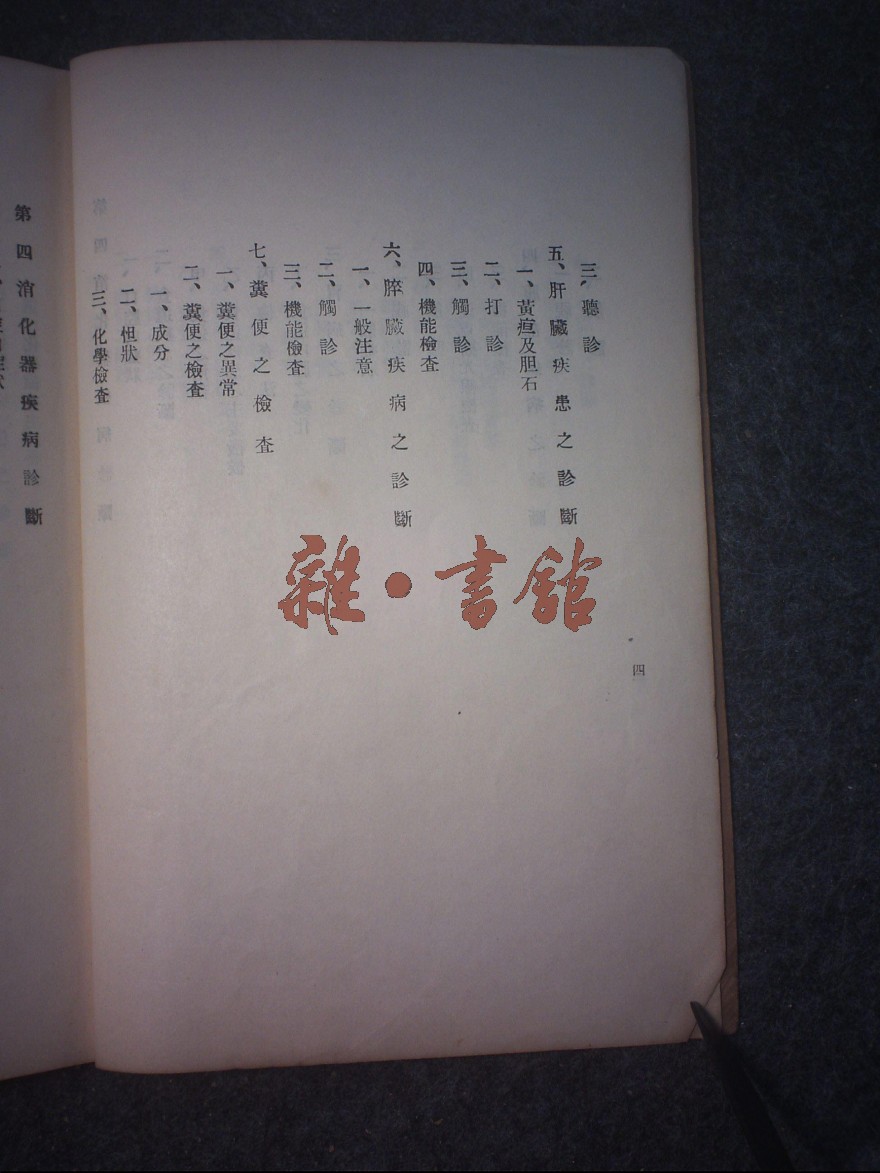 三、聽診
五、肝臟疾患之診斷
一、黃疸及胆石
二、打診
三、觸診
四、機能檢查
六、膵臟疾病之診斷
一、一般注意
二、觸診
三、機能檢査
七、糞便之檢査
一、糞便之異常
二、糞便之檢査
一、成分
二、怛狀
三、化學檢査
四
第四消化器疾病診斷
雜•書舘